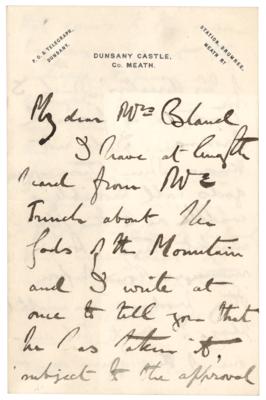 P.O. & TELEGRAPH,
DUNSANY.
DUNSANY CASTLE,
Co. MEATH.
STATION, DRUMREE,
MEATH RY
My dear Mrs Bland
I have at length
heard from Mr
Trench about the
Gods of the Mountain
and I write at
once to tell you that
he has taken it,
subject to the approval